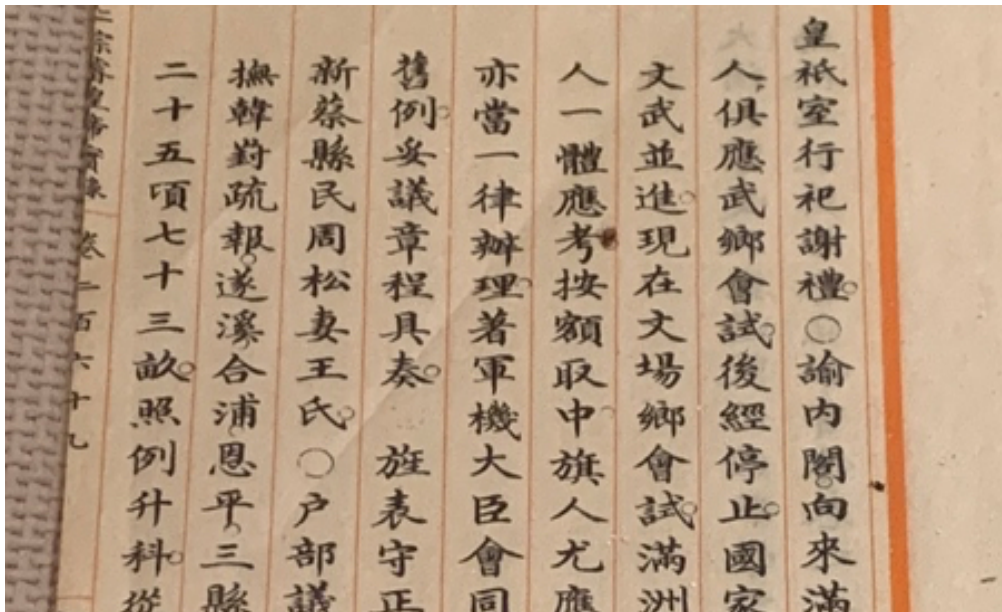 皇祇室行祀謝禮。○諭內閣。向來滿
人俱應武鄉會試。後經停止。國家
文武並進。現在文場鄉會試。滿洲
人一體應考按額取中。旗人尤應
亦當一律辦理。著軍機大臣會同
舊例。妥議章程具奏。 旌表守正
新蔡縣民周松妻王氏。○户部議
撫韓疏報。遂溪合浦恩平、三縣
二十五頃七十三畝。照例升科。從
宗睿皇帝實錄 卷二百六十九